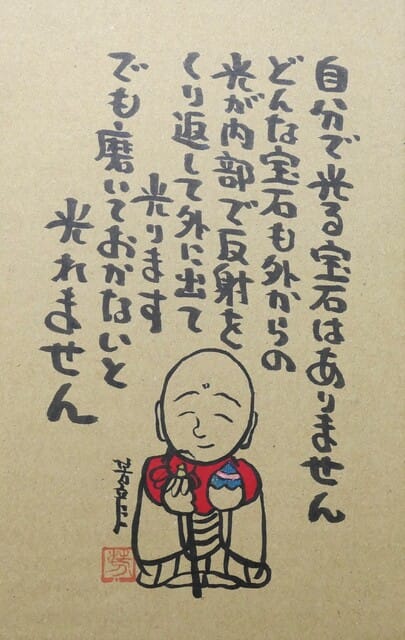 自分で光る宝石はありません
どんな宝石も外からの
光が内部で反射を
くり返して外に出て
光ります
でも磨いておかないと
光れません